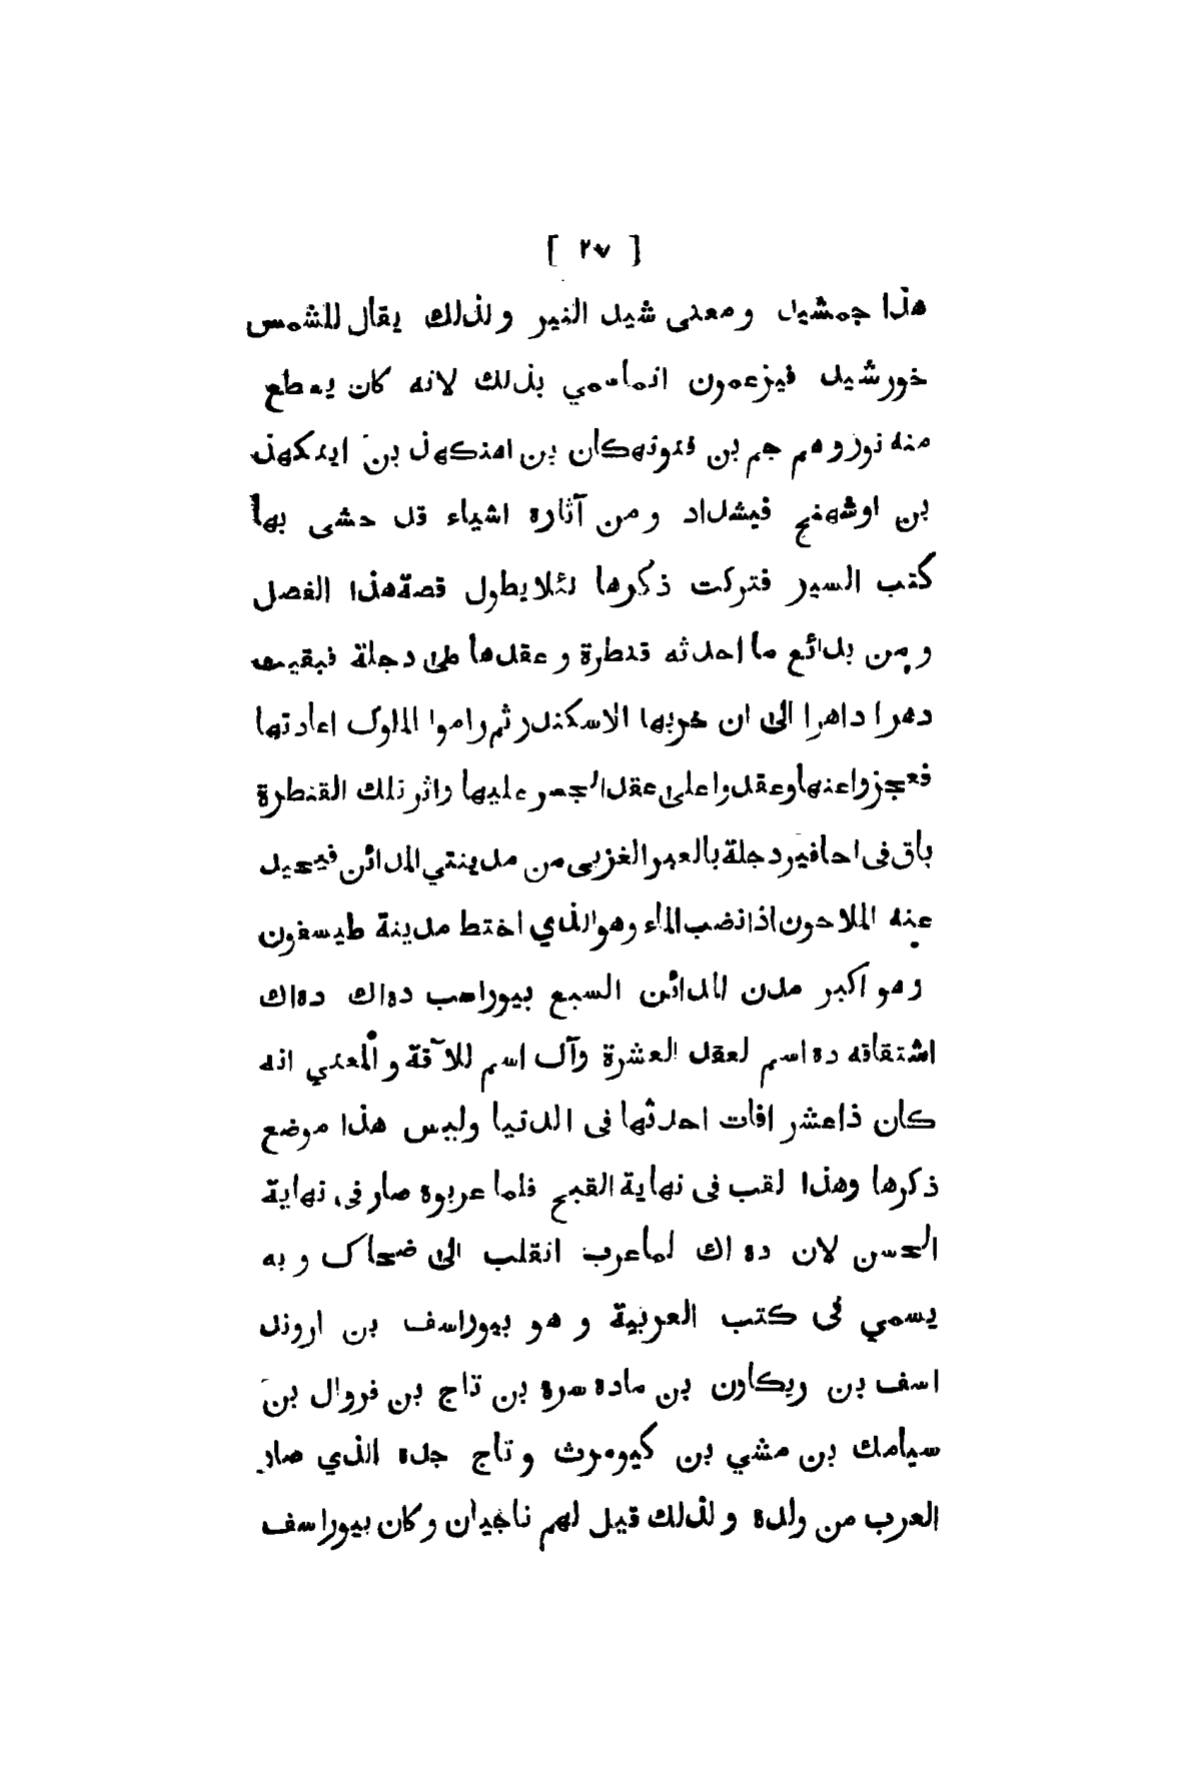 [ ٢٧ ]
هذا جمشيد ومعنى شيد النير ولذلك يقال للشمس
خورشيد فيزعمون انماسمي بذلك لانه كان يسطع
منه نوروهم جم بن فنونهكان بن اهنكهذ بن اينكهذ
بن اوشهنج فيشداد ومن آثاره اشياء قد حشى بها
كتب السير فتركت ذكرها لئلا يطول قصةهذا الفصل
ومن بدائع ما احدثه قنطرة وعقدها على دجلة فبقيت
دهرا داهرا الى ان خربها الاسكندر ثم راموا الملوك اعادتها
فعجزواعنهاوعقدواعلى عقدالجسر عليها واثر تلك القنطرة
باق فى احافير دجلة بالعبر الغزبى من مدينتي المدائن فيحيد
عنه الملاحون اذا نضب الماء وهوالذي اختط مدينة طيسفون
وهو اكبر مدن المدائن السبع بيوراسب ده اك ده اك
اشتقاقه ده اسم لعقد العشرة وآك اسم للآفة والمعني انه
كان ذاعشر افات احدثها فى الدنيا وليس هذا موضع
ذكرها وهذا لقب فى نهاية القبح فلما عربوه صار فى نهاية
الحسن لان ده اك لماعرب انقلب الى ضحاك وبه
يسمي فى كتب العربية و هو بيوراسف بن اروند
اسف بن ريكاون بن ماده سره بن تاج بن فروال بن
سيامك بن مشي بن كيومرث وتاج جده الذي صار
العرب من ولده ولذلك قيل لهم تاخيان وكان بيوراسف